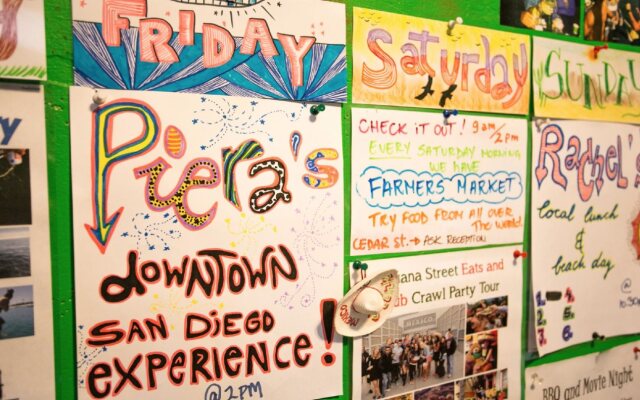 FRIDAY
Piera's
DOWNTOWN
SAN DIEGO
EXPERIENCE!
@ 2PM
Saturday
CHECK IT OUT! 9am/2pm
EVERY SATURDAY MORNING
WE HAVE
FARMERS' MARKET
TRY FOOD FROM ALL OVER
THE World!
CEDAR St. → ASK RECEPTION
ana Street Eats and
ub Crawl Party Tour
MEXICO
SUNDAY
Rachel's
local lunch
&
beach day
1.
2.
3.
4.
5.
6.
BBQ and Movie Night